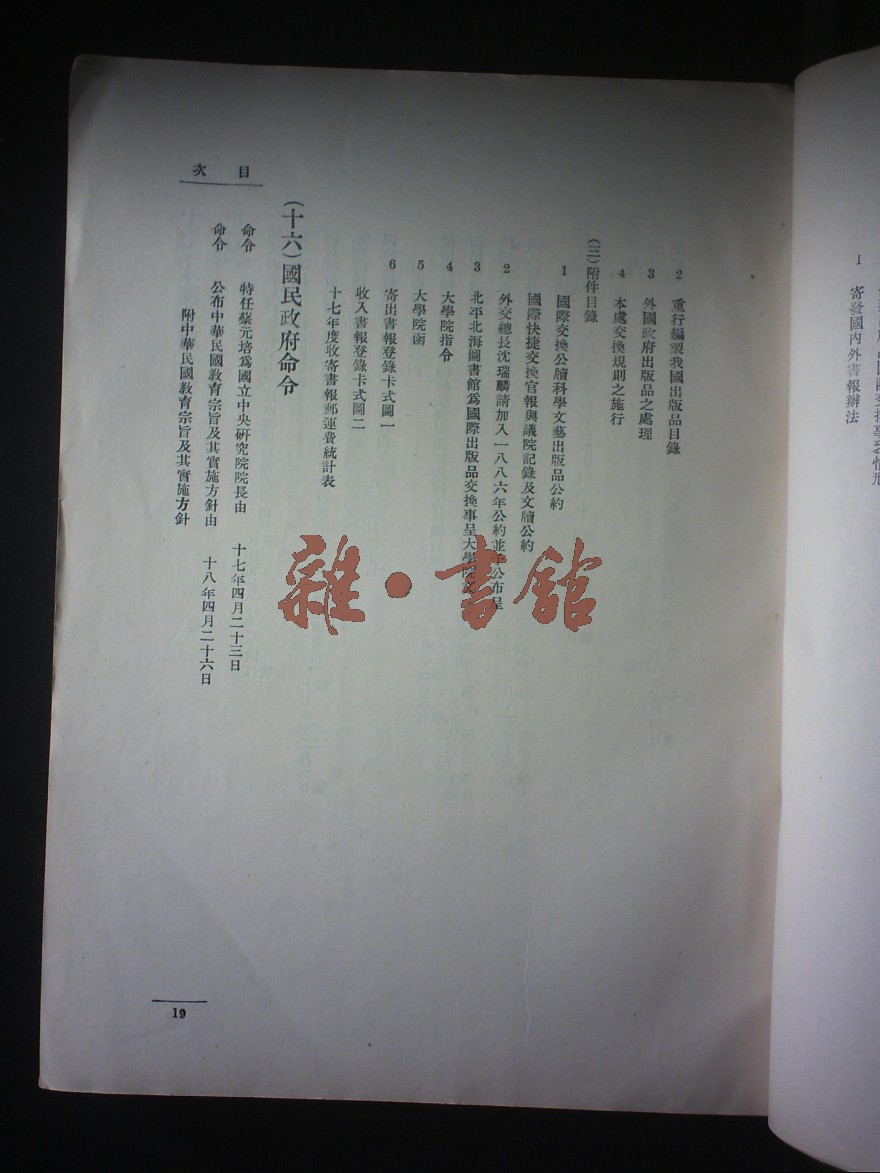 1 寄發國內外書報辦法
目次
2 重行編製我國出版品目錄
3 外國政府出版品之處理
4 本處交換規則之施行
(三)附件目錄
1 國際交換公牘科學文藝出版品公約
國際快捷交換官報與議院記錄及文牘公約
2 外交總長沈瑞麟請加入一八八六年公約並予公布呈
3 北平北海圖書館爲國際出版品交換事呈大學院文
4 大學院指令
5 大學院函
6 寄出書報登錄卡式圖一
收入書報登錄卡式圖二
十七年度收寄書報郵運費統計表
(十六)國民政府命令
命令 特任蔡元培爲國立中央研究院院長由 十七年四月二十三日
命令 公布中華民國教育宗旨及其實施方針由 十八年四月二十六日
附中華民國教育宗旨及其實施方針
19
雜·書館